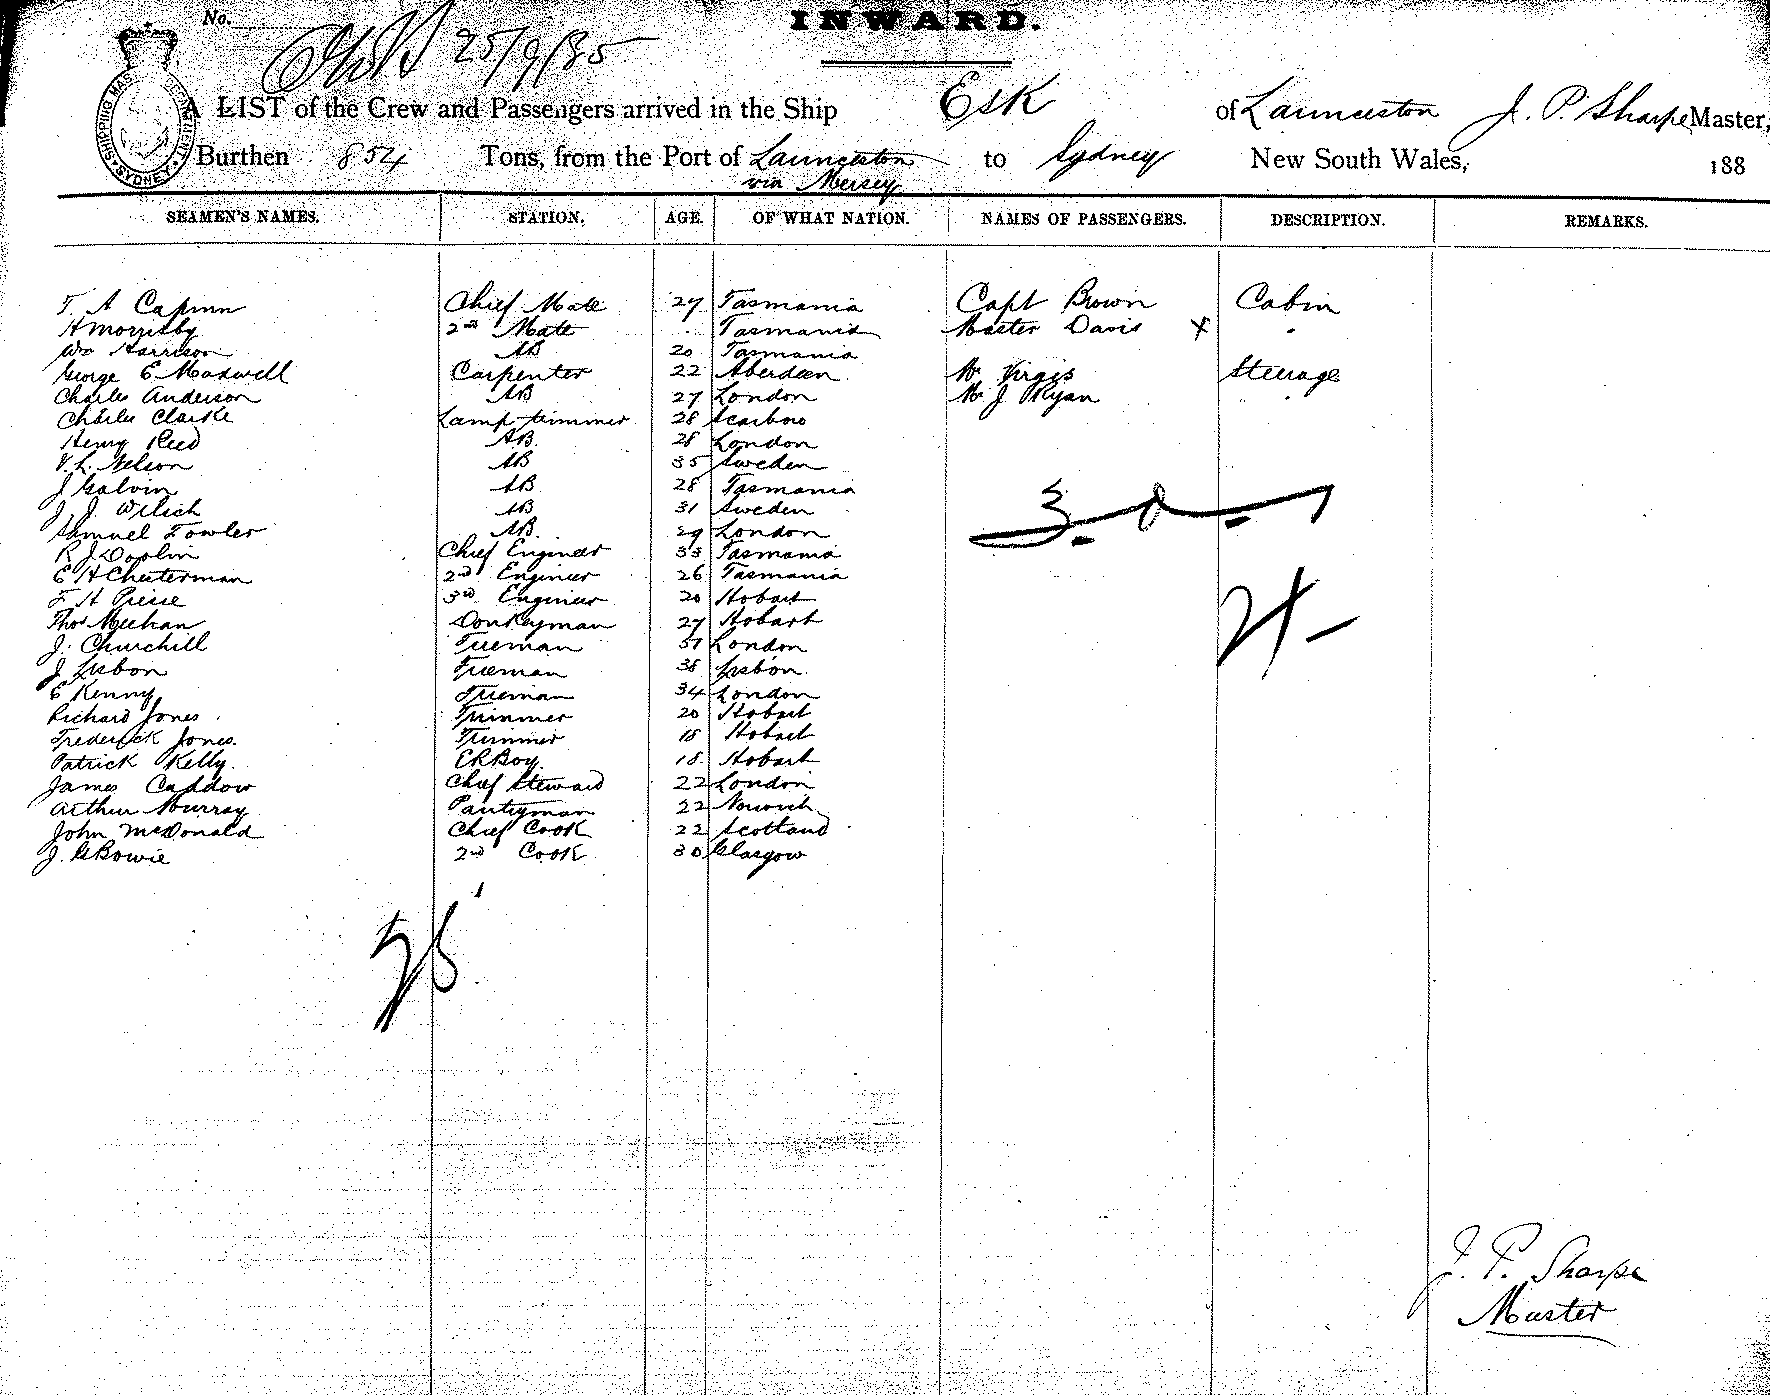 No.
INWARD.
25/9/85
A LIST of the Crew and Passengers arrived in the Ship Esk of Launceston J. P. Sharpe Master,
Burthen 854 Tons, from the Port of Launceston via Mersey to Sydney New South Wales, 188
SHIPPING MASTER SYDNEY
SEAMEN'S NAMES. STATION. AGE. OF WHAT NATION. NAMES OF PASSENGERS. DESCRIPTION. REMARKS.
T. A Chief Mate 27 Tasmania Capt Brown Cabin
H Morrisby 2nd Mate Tasmania Master Davis x "
Wm Harrison AB 20 Tasmania
George E Maxwell Carpenter 22 Aberdeen Mr Virgis Steerage
Charles Anderson AB 27 London Mr J Ryan "
Charles Clarke Lamp trimmer 28 Scarboro
Henry Reed AB. 28 London
V. L. Nelson AB 35 Sweden
J Galvin AB 28 Tasmania
J. J. Wilsch AB 31 Sweden
Samuel Fowler AB. 29 London
R J Doolin Chief Engineer 33 Tasmania
E H Chesterman 2nd Engineer 26 Tasmania
F H Piesse 3rd Engineer 20 Hobart
Thos Meehan Donkeyman 27 Hobart
J. Churchill Fireman 51 London
J Lisbon Fireman 38 Lisbon
E Kenny Fireman 34 London
Richard Jones Trimmer 20 Hobart
Frederick Jones. Trimmer 18 Hobart
Patrick Kelly. E R Boy. 18. Hobart
James Caddow Chief Steward 22 London
Arthur Murray Pantryman 22 Norwich
John McDonald Chief Cook 22 Scotland
J. G Bowie 2nd Cook 30 Glasgow
J. P. Sharpe
Master